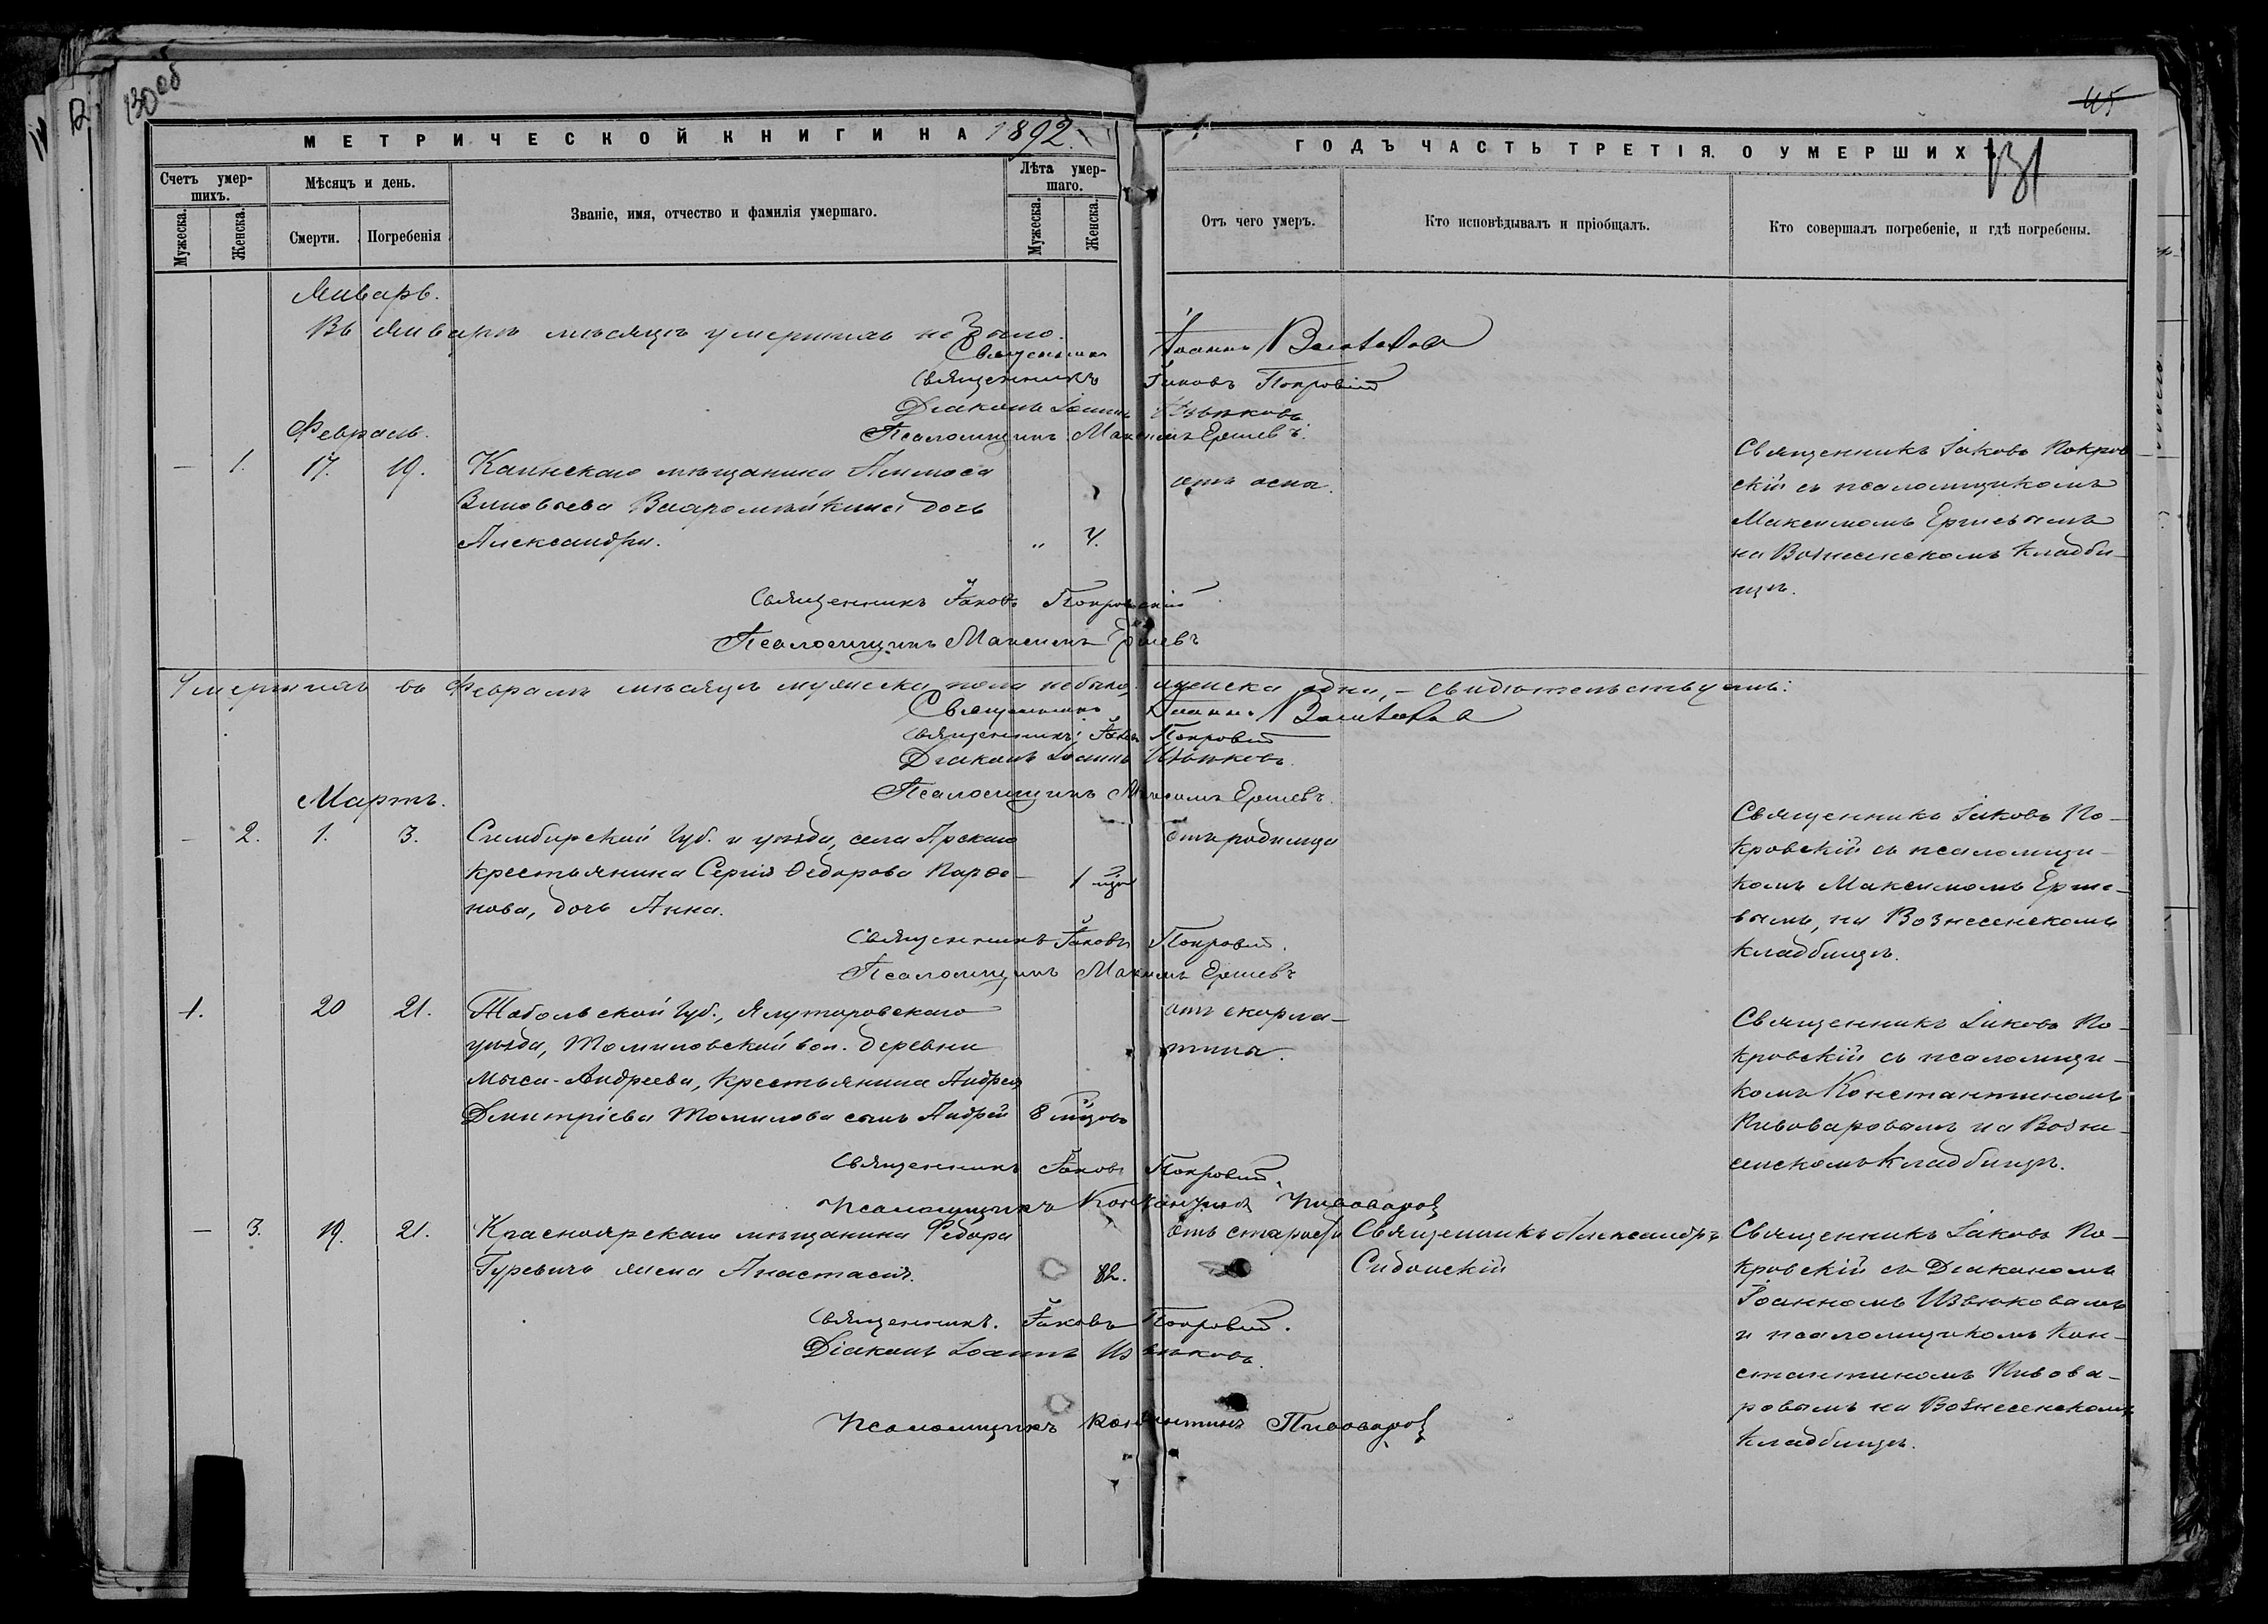 130 об
45
131
МЕТРИЧЕСКОЙ КНИГИ НА 1892
ГОДЪ ЧАСТЬ ТРЕТІЯ. О УМЕРШИХЪ
Счетъ умер-
шихъ.
Мѣсяцъ и день.
Званіе, имя, отчество и фамилія умершаго.
Лѣта умер-
шаго.
Мужеска.
Женска.
Смерти.
Погребенія
Мужеска.
Женска.
Отъ чего умеръ.
Кто исповѣдывалъ и пріобщалъ.
Кто совершалъ погребеніе, и гдѣ погребены.
Январь.
Въ Январѣ мѣсяцѣ умершихъ не было.
Священникъ Іоаннъ
Священникъ Іаковъ Покровскій
Діаконъ Іоаннъ Извѣковъ
Февраль.
Псаломщикъ Максимъ Ершевъ.
— 1. 17. 19. Каинскаго мѣщанина
дочь
Александра. „ 4.
отъ оспы.
Священникъ Іаковъ Покров
скій съ псаломщикомъ
Максимомъ Ершевымъ
на Вознесенскомъ кладби-
щѣ.
Священникъ Іаковъ Покровскій
Псаломщикъ Максимъ Ершевъ
Умершихъ въ Февралѣ мѣсяцѣ мужеска пола не было, женска одна, – свидѣтельствуемъ:
Священникъ Іоаннъ
Священникъ Іаковъ Покровскій
Діаконъ Іоаннъ Извѣковъ.
Псаломщикъ Максимъ Ершевъ.
Мартъ.
— 2. 1. 3. Симбирской губ. и уѣзда, села Арскаго
крестьянина Сергія Ѳедорова Парѳе-
нова, дочь Анна.
1 мца
отъ родимца
Священникъ Іаковъ По-
кровскій съ псаломщи-
комъ Максимомъ Ерше-
вымъ, на Вознесенскомъ
кладбищѣ.
Священникъ Іаковъ Покровскій.
Псаломщикъ Максимъ Ершевъ
1. 20 21. Тобольской губ., Ялуторовскаго
уѣзда, Томиловской вол. деревни
Мыса-Андреева, крестьянина Андрея
Дмитріева Томилова сынъ Андрей 8 мцовъ
отъ скарла-
тины.
Священникъ Іаковъ По-
кровскій съ псаломщи-
комъ Константиномъ
Пивоваровымъ на Возне-
сенскомъ кладбищѣ.
Священникъ Іаковъ Покровскій.
Псаломщикъ Константинъ Пивоваровъ
— 3. 19. 21. Красноярскаго мѣщанина Федора
Гуревича жена Анастасія. 82.
отъ старости
Священникъ Александръ
Сидонскій
Священникъ Іаковъ По-
кровскій съ Діакономъ
Іоанномъ Извѣковымъ
и псаломщикомъ Кон-
стантиномъ Пивова-
ровымъ на Вознесенскомъ
кладбищѣ.
Священникъ. Іаковъ Покровскій.
Діаконъ Іоаннъ Извѣковъ.
Псаломщикъ Константинъ Пивоваровъ